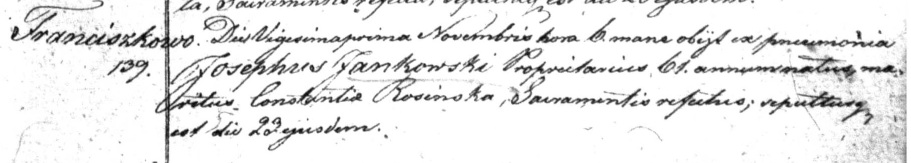 ta, Sacramentis refecta, sepulta, est die 20 ejusdem.
Franciszkowo. Die Vigesimaprima Novembris hora 6 mane obijt ex pneumonia
139. Josephus Jankowski Proprietarius, 61. annum natus, ma-
ritus Constantiæ Rosinska, Sacramentis refectus, sepultusq
est die 23 ejusdem.